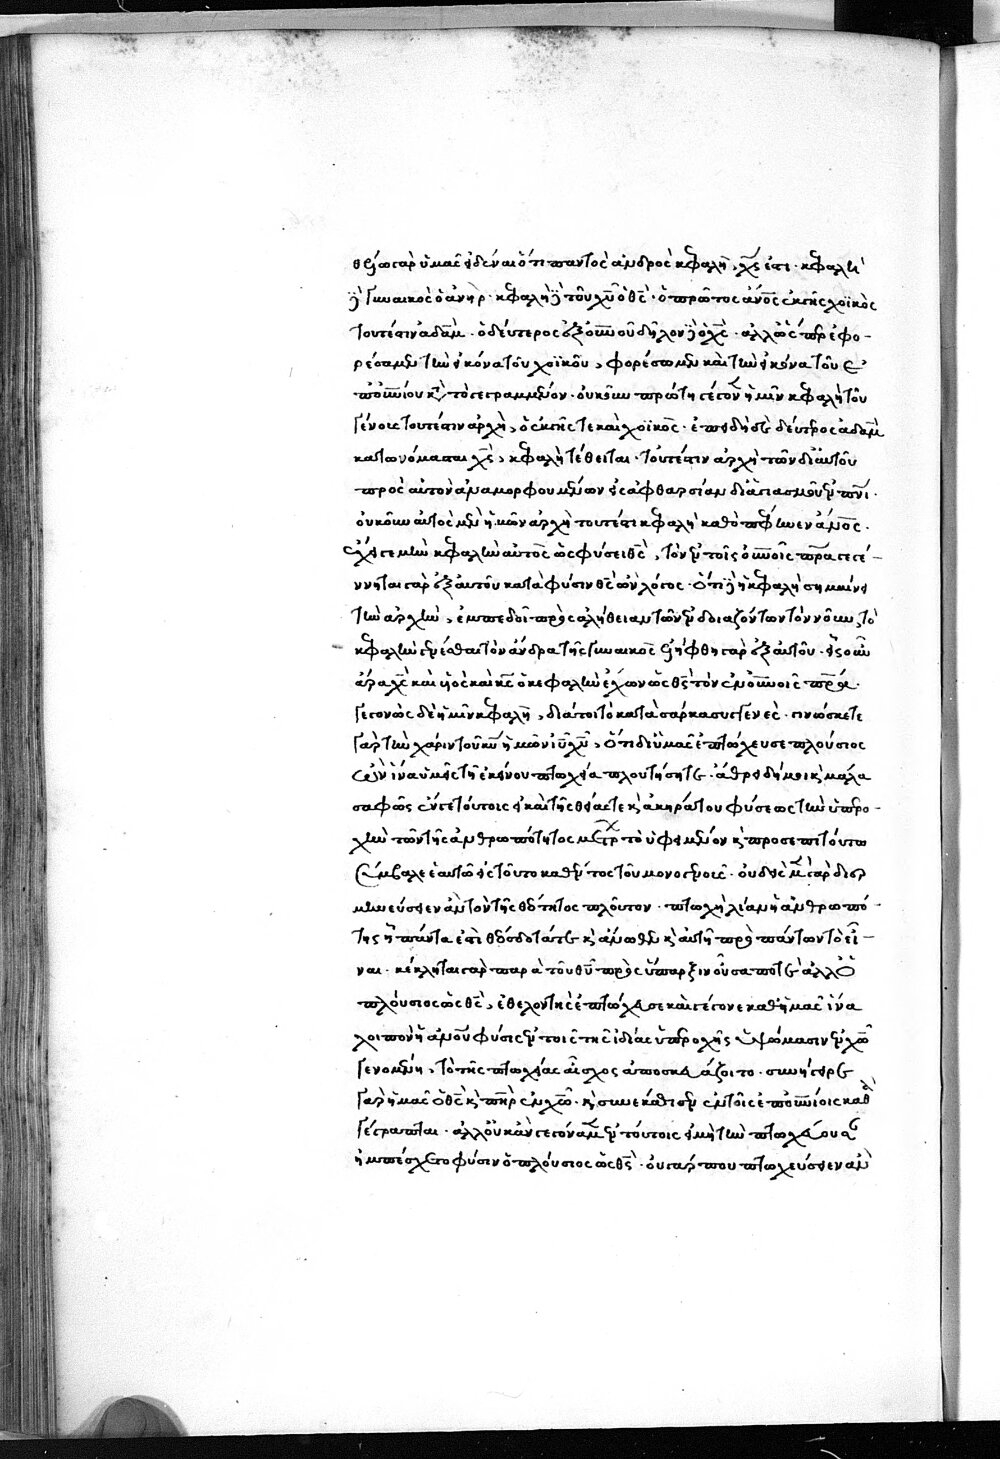 θέλω γὰρ ὑμᾶς εἰδέναι ὅτι παντὸς ἀνδρὸς κεφαλὴ, χς ἐστι· κεφαλὴ
δὲ γυναικὸς ὁ ἀνήρ· κεφαλὴ δὲ τοῦ χυ ὁ θς· ὁ πρῶτος ἄνος ἐκ γῆς χοϊκὸς
τουτέστιν ἀδάμ· ὁ δεύτερος ἐξ οὐνου δῆλον δὲ ὁ χς· ἀλλ' ὥσπερ ἐφο-
ρέσαμεν τὴν εἰκόνα τοῦ χοϊκοῦ, φορέσωμεν καὶ τὴν εἰκόνα τοῦ ἐ
πουνίου κατὰ τὸ γεγραμμένον· οὐκοῦν πρώτη γέγονεν ἡμῖν κεφαλὴ τοῦ
γένους τουτέστιν ἀρχὴ, ὁ ἐκ γῆς τε καὶ χοϊκός· ἐπειδὴ δὲ δεύτερος ἀδὰμ
κατωνόμασται χς, κεφαλὴ τέθειται· τουτέστιν ἀρχὴ τῶν δι' αὐτοῦ
πρὸς αὐτὸν ἀναμορφουμένων εἰς ἀφθαρσίαν δι' ἁγιασμοῦ ἐν πνι·
οὐκοῦν αὐτὸς μὲν ἡμῶν ἀρχὴ τουτέστι κεφαλὴ καθὸ πέφηνεν ἄνος·
ἔχει γε μὴν κεφαλὴν αὐτὸς ὡς φύσει θς, τὸν ἐν τοῖς οὐνοις πρα γεγέ-
ννηται γὰρ ἐξ αὐτοῦ κατὰ φύσιν θς ὢν λόγος· ὅτι δὲ ἡ κεφαλὴ σημαίνει
τὴν ἀρχὴν, ἐμπεδοῖ πρὸς ἀλήθειαν τῶν ἐνδοιαζόντων τὸν νοῦν, τὸ
κεφαλὴν γενέσθαι τὸν ἄνδρα τῆς γυναικὸς ἐλήφθη γὰρ ἐξ αὐτοῦ· εἷς οὖν
ἄρα χς καὶ υἱὸς καὶ κς ὁ κεφαλὴν ἔχων ὡς θς τὸν ἐν οὐνοις πρα·
γέγονὼς δὲ ἡμῖν κεφαλὴ, διά τοι τὸ κατὰ σάρκα συγγενές· γινώσκετε
γὰρ τὴν χάριν τοῦ κυ ἡμῶν ιυ χυ, ὅτι δι' ὑμᾶς ἐπτώχευσε πλούσιος
ὢν ἵνα ὑμεῖς τῇ ἐκείνου πτωχείᾳ πλουτήσητε· ἄθρει δή μοι καὶ μάλα
σαφῶς ἔν γε τούτοις εἰ καὶ τῆς θείας τε καὶ ἀκηράτου φύσεως τὴν ὑπερο-
χὴν τῶν τῆς ἀνθρωπότητος μέτρων τὸ ὑφειμένον καὶ προσεπιτούτῳ
συμβάλλε ἑαυτῷ εἰς τοῦτο καθέντος τοῦ μονογενοῦς· οὐδεὶς μὲν γὰρ διερ
μηνεύσειεν ἂν τὸν τῆς θεότητος πλοῦτον· πτωχὴ λίαν ἡ ἀνθρωπό-
της ᾗ πάντα ἐστὶ θεόσδοτά τε καὶ ἄνωθεν καὶ αὐτὴ πρὸ πάντων τὸ εἶ-
ναι· κέκληται γὰρ παρὰ τοῦ θυ πρὸς ὕπαρξιν οὖσα ποτὲ ἀλλ' ὁ
πλούσιος ὡς θς, ἐθελοντὴς ἐπτώχευσε καὶ γέγονε καθ' ἡμᾶς ἵνα
λοιπὸν ἡ ἀνου φύσις ἐν τοῖς τῆς ἰδίας ὑπεροχῆς ὑψώμασιν ἐν χω
γενομένη, τὸ τῆς πτωχείας αἶσχος ἀποσκευάζοιτο· συνήγειρε
γὰρ ἡμᾶς ὁ θς καὶ πηρ ἐν χω· καὶ συνεκάθισεν ἐν τοῖς ἐπουνίοις καθὰ
γέγραπται· ἀλλ' οὐκ ἂν γέγονεν ἂν ἐν τούτοις εἰ μὴ τὴν πτωχεύουσαν
ἠμπέσχετο φύσιν ὁ πλούσιος ὡς θς· οὐ γάρ που πτωχεύσειεν ἂν